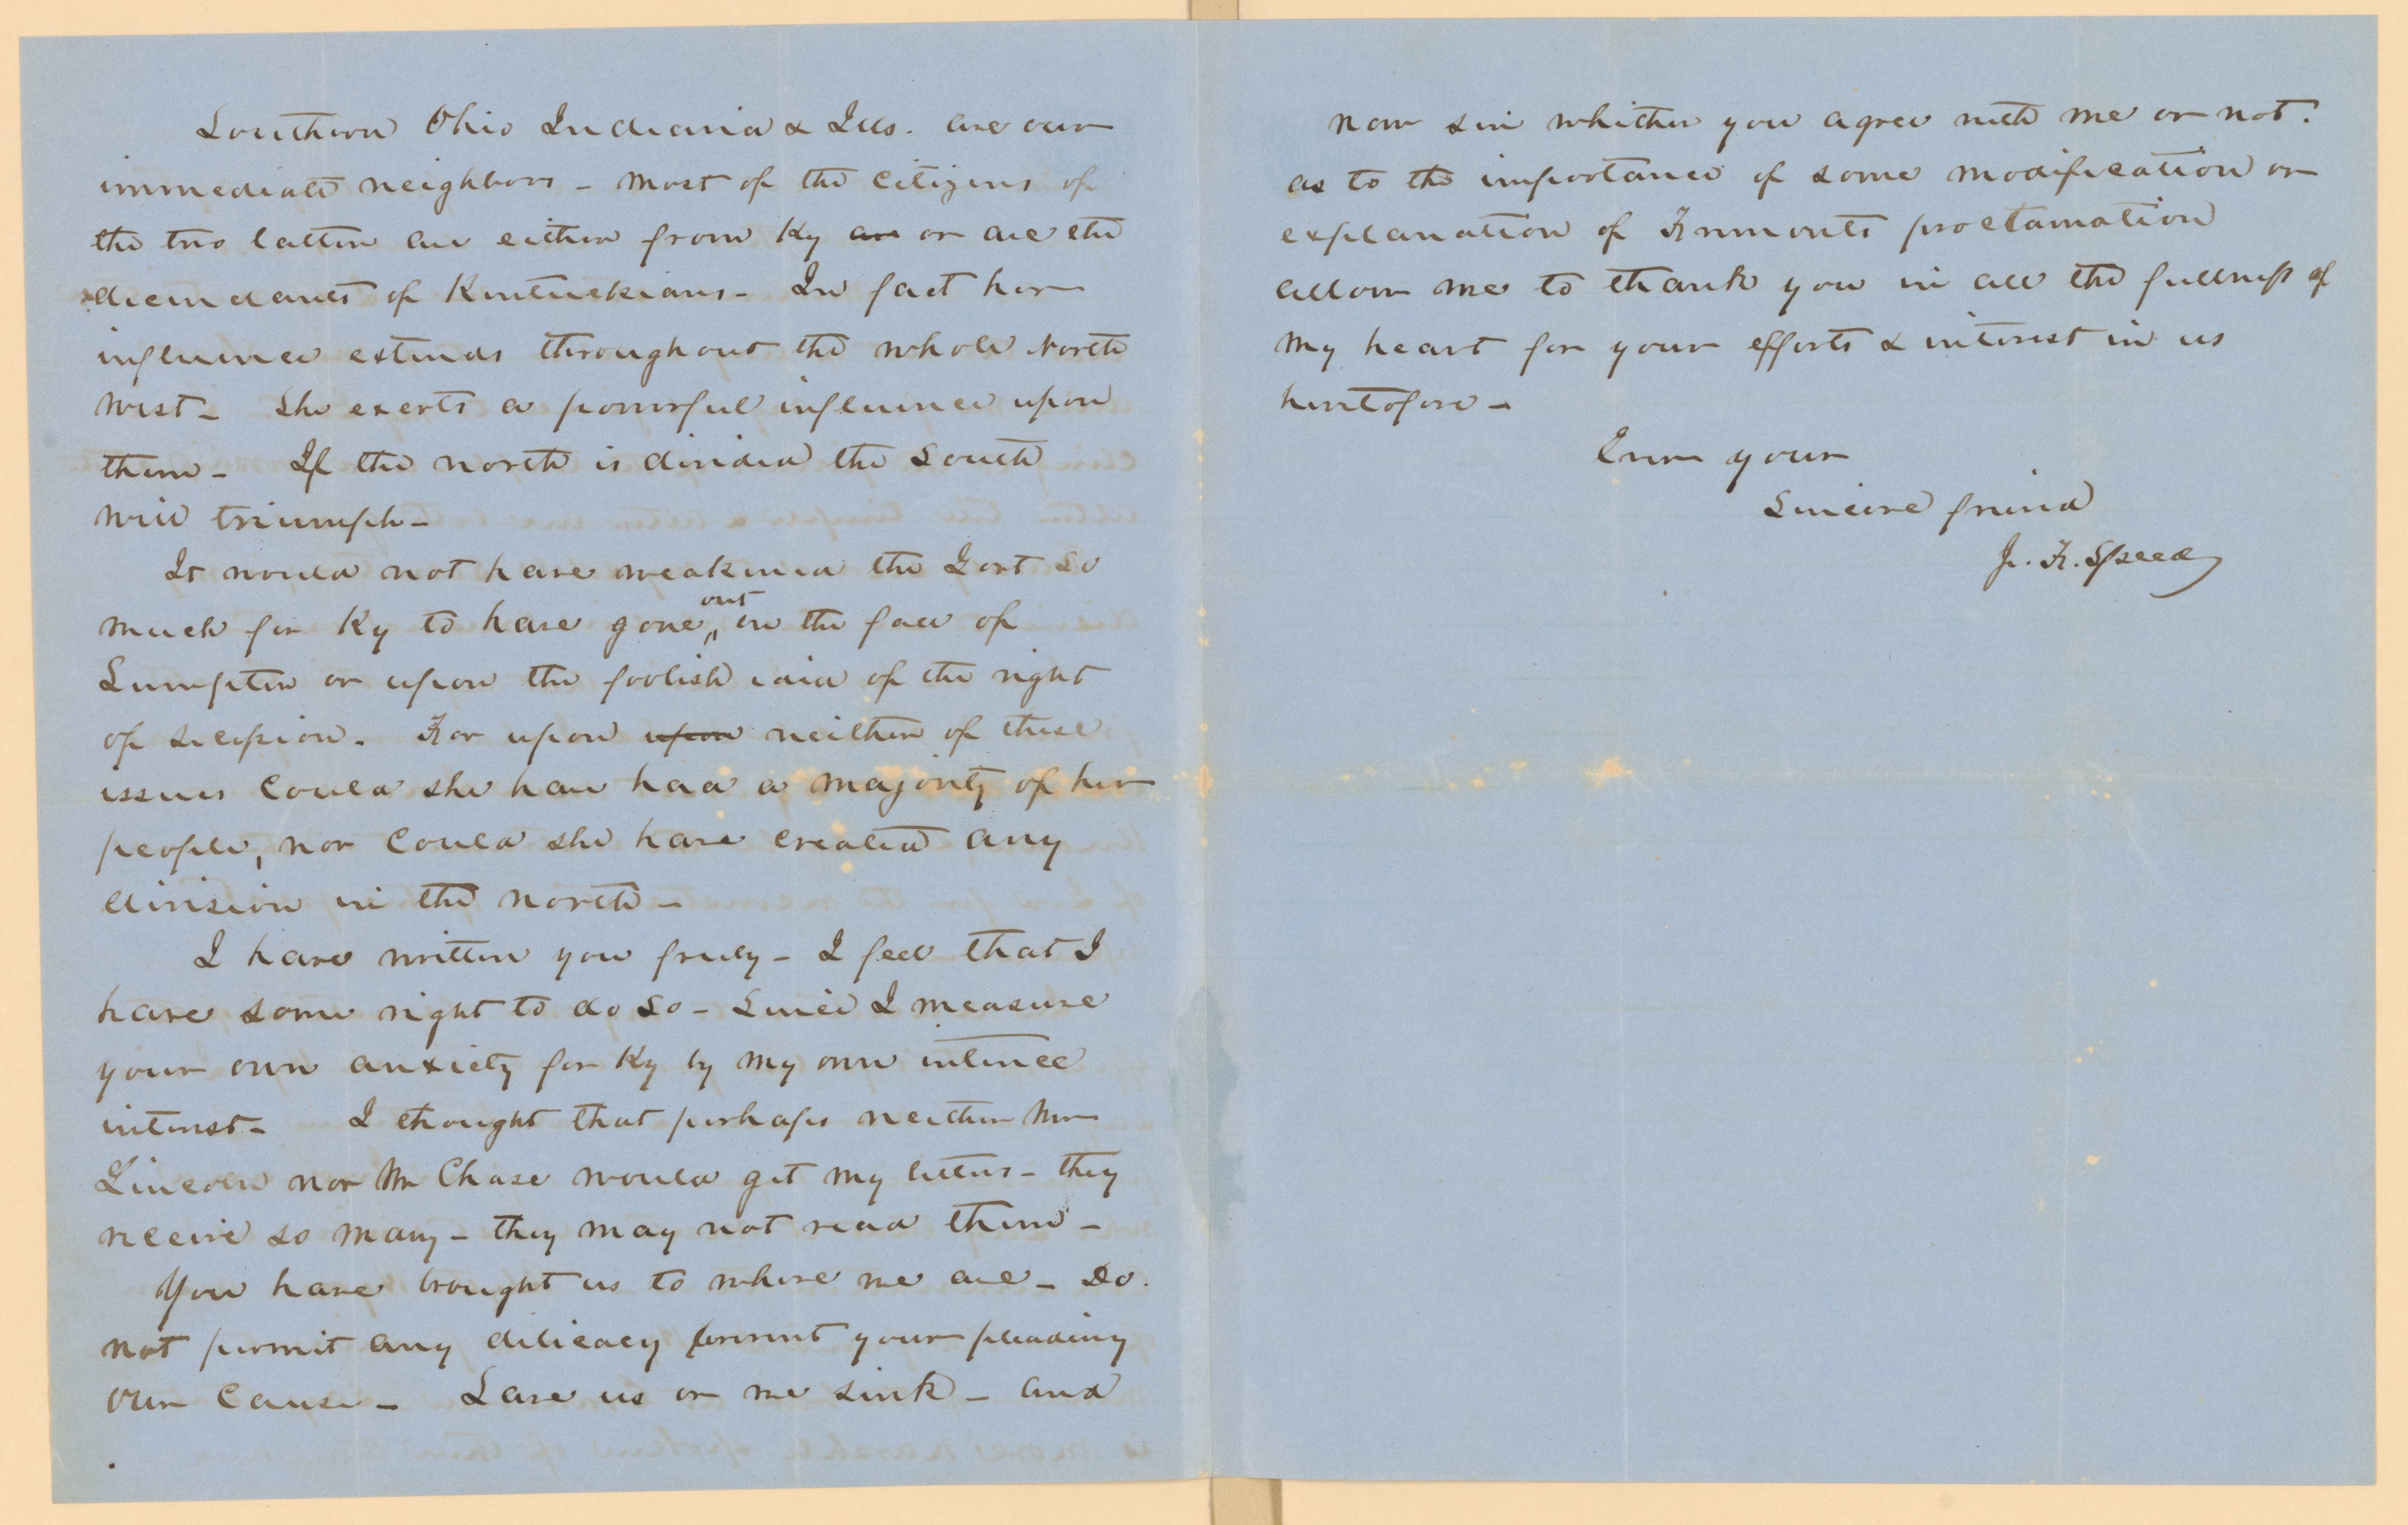 Southern Ohio Indiana & Ills. are our
immediate neighbors - most of the citizens of
the two latter are either from Ky are or are the
decendants of Kentuckians - In fact her
influence extends throughout the whole North
West - She exerts a powerful influence upon
them - If the north is divided the South
will triumph -
It would not have weakened the Govt so
much for Ky to have gone out on the face of
Sumpter or upon the foolish idia of the right
of secession. For upon upon neither of these
issues could she have had a majority of her
people, nor could she have created any
division in the north -
I have written you freely - I feel that I
have some right to do so - Since I measure
your own anxiety for Ky by my own intence
interest - I thought that perhaps neither Mr
Lincoln nor Mr Chase would get my letters - they
receive so many - they may not read them -
You have brought us to where we are - Do.
not permit any delicacy prevent your pleading
our cause - Save us or we sink - and
now sir whether you agree with me or not.
as to the importance of some modification or
explanation of Fremonts proclamation
allow me to thank you in all the fullness of
my heart for your efforts & interest in us
heretofore -
Ever your
Sincere friend
J. F. Speed